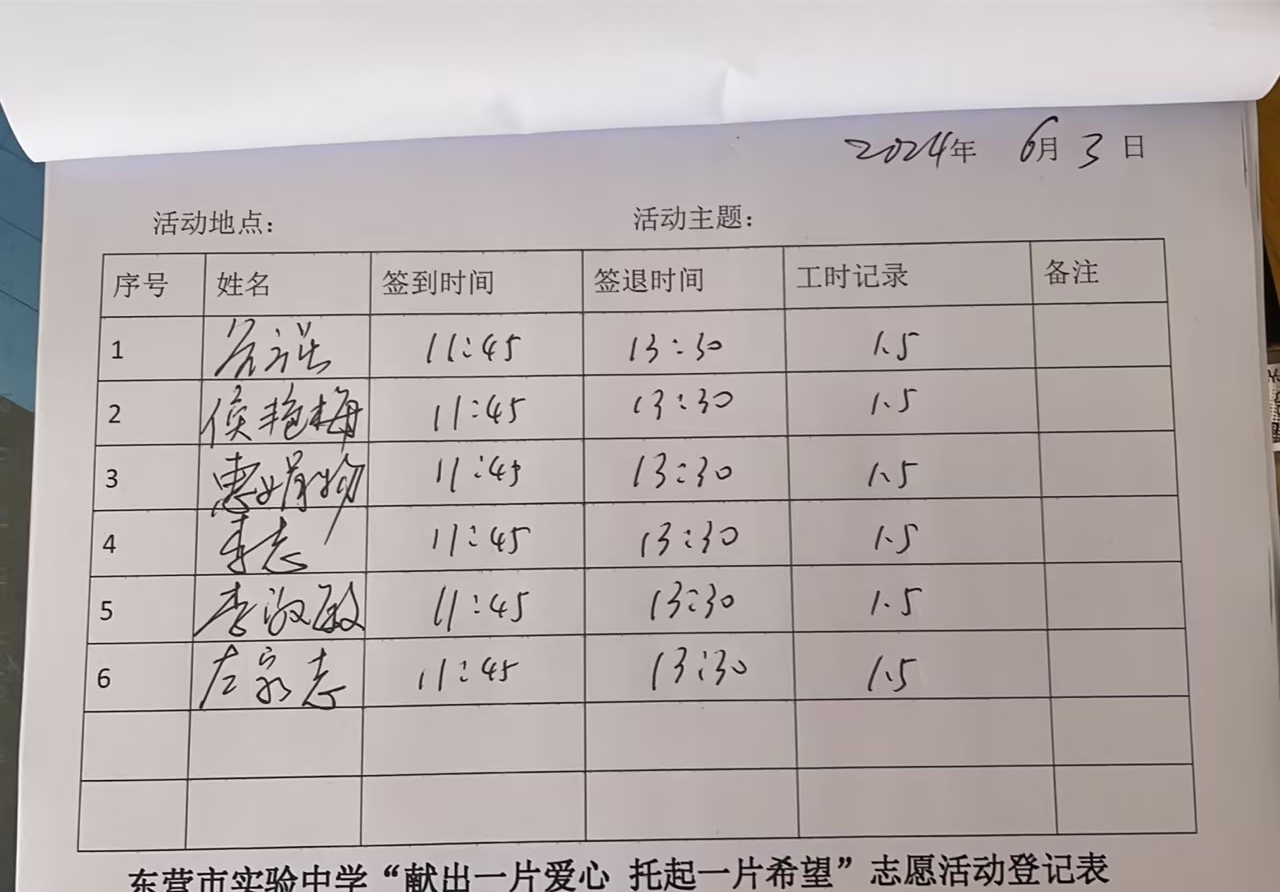 2024年 6月3日
活动地点： 活动主题：
序号 姓名 签到时间 签退时间 工时记录 备注
1 11:45 13:30 1.5
2 侯艳梅 11:45 13:30 1.5
3 11:45 13:30 1.5
4 李志 11:45 13:30 1.5
5 李淑敏 11:45 13:30 1.5
6 左家志 11:45 13:30 1.5
东营市实验中学“献出一片爱心 托起一片希望”志愿活动登记表